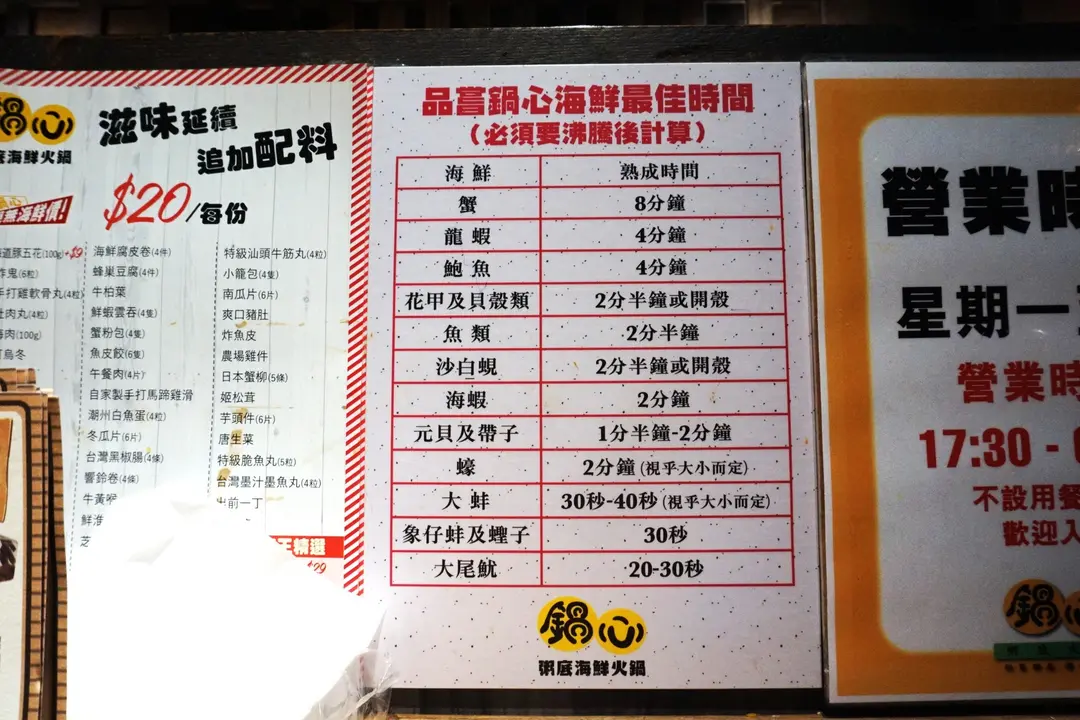 鍋心
底海鮮火鍋
滋味延續
追加配料
海鮮價!
$20/每份
道豚五花(100g)+$9
炸鬼(6粒)
手打雞軟骨丸(4粒)
肉丸(4粒)
肉(100g)
烏冬
海鮮腐皮卷(4件)
蜂巢豆腐(4件)
牛柏葉
鮮蝦雲吞(4隻)
蟹粉包(4隻)
魚皮餃(6隻)
午餐肉(4片)
自家製手打馬蹄雞滑
潮州白魚蛋(4粒)
冬瓜片(6片)
台灣黑椒腸(4條)
響鈴卷(4條)
牛黃喉
鮮淮
芝
特級汕頭牛筋丸(4粒)
小籠包(4隻)
南瓜片(6片)
爽口豬肚
炸魚皮
農場雞件
日本蟹柳(5條)
姬松茸
芋頭件(6片)
唐生菜
特級脆魚丸(5粒)
台灣墨汁墨魚丸(4粒)
出前一丁
王精選
品嘗鍋心海鮮最佳時間
(必須要沸騰後計算)
海鮮 熟成時間
蟹 8分鐘
龍蝦 4分鐘
鮑魚 4分鐘
花甲及貝殼類 2分半鐘或開殼
魚類 2分半鐘
沙白蜆 2分半鐘或開殼
海蝦 2分鐘
元貝及帶子 1分半鐘-2分鐘
蠔 2分鐘(視乎大小而定)
大蚌 30秒-40秒(視乎大小而定)
象仔蚌及蟶子 30秒
大尾魷 20-30秒
鍋心
粥底海鮮火鍋
營業時
星期一
營業時
17:30 -
不設用餐
歡迎入
鍋心